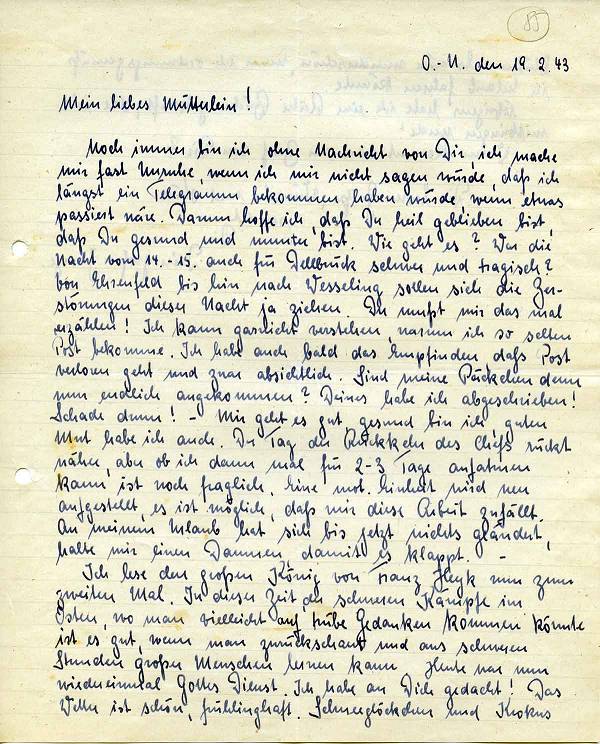 85
O.-U. den 19.2.43
Mein liebes Mütterlein!
Noch immer bin ich ohne Nachricht von Dir, ich mache
mir fast Unruhe, wenn ich mir nicht sagen würde, daß ich
längst ein Telegramm bekommen haben würde, wenn etwas
passiert wäre. Darum hoffe ich, daß Du heil geblieben bist,
daß Du gesund und munter bist. Wie geht es? War die
Nacht vom 14.-15. auch für Dellbrück schwer und tragisch?
Von Ehrenfeld bis hin nach Wesseling sollen sich die Zer-
störungen dieser Nacht ja ziehen. Du mußt mir das mal
erzählen! Ich kann garnicht verstehen, warum ich so selten
Post bekomme. Ich habe auch bald das Empfinden, daß Post
verloren geht und zwar absichtlich. Sind meine Päckchen denn
nun endlich angekommen? Deines habe ich abgeschrieben!
Schade drum! - Mir geht es gut, gesund bin ich, guten
Mut habe ich auch. Der Tag der Rückkehr des Chefs rückt
näher, aber ob ich dann mal für 2-3 Tage
kann ist noch fraglich. Eine mot. Einheit wird neu
aufgestellt, es ist möglich, daß mir diese Arbeit zufällt.
An meinem Urlaub hat sich bis jetzt nichts geändert,
halte mir einen Daumen damit es klappt. -
Ich lese den großen König von Franz Heyk nun zum
zweiten Mal. In dieser Zeit der schweren Kämpfe im
Osten, wo man vielleicht auf trübe Gedanken kommen könnte
ist es gut, wenn man zurückschaut und aus schweren
Stunden großer Menschen lernen kann. Heute war nun
wiedereinmal Gottes Dienst. Ich habe an Dich gedacht! Das
Wetter ist schön, frühlinghaft. Schneeglöckchen und Krokus